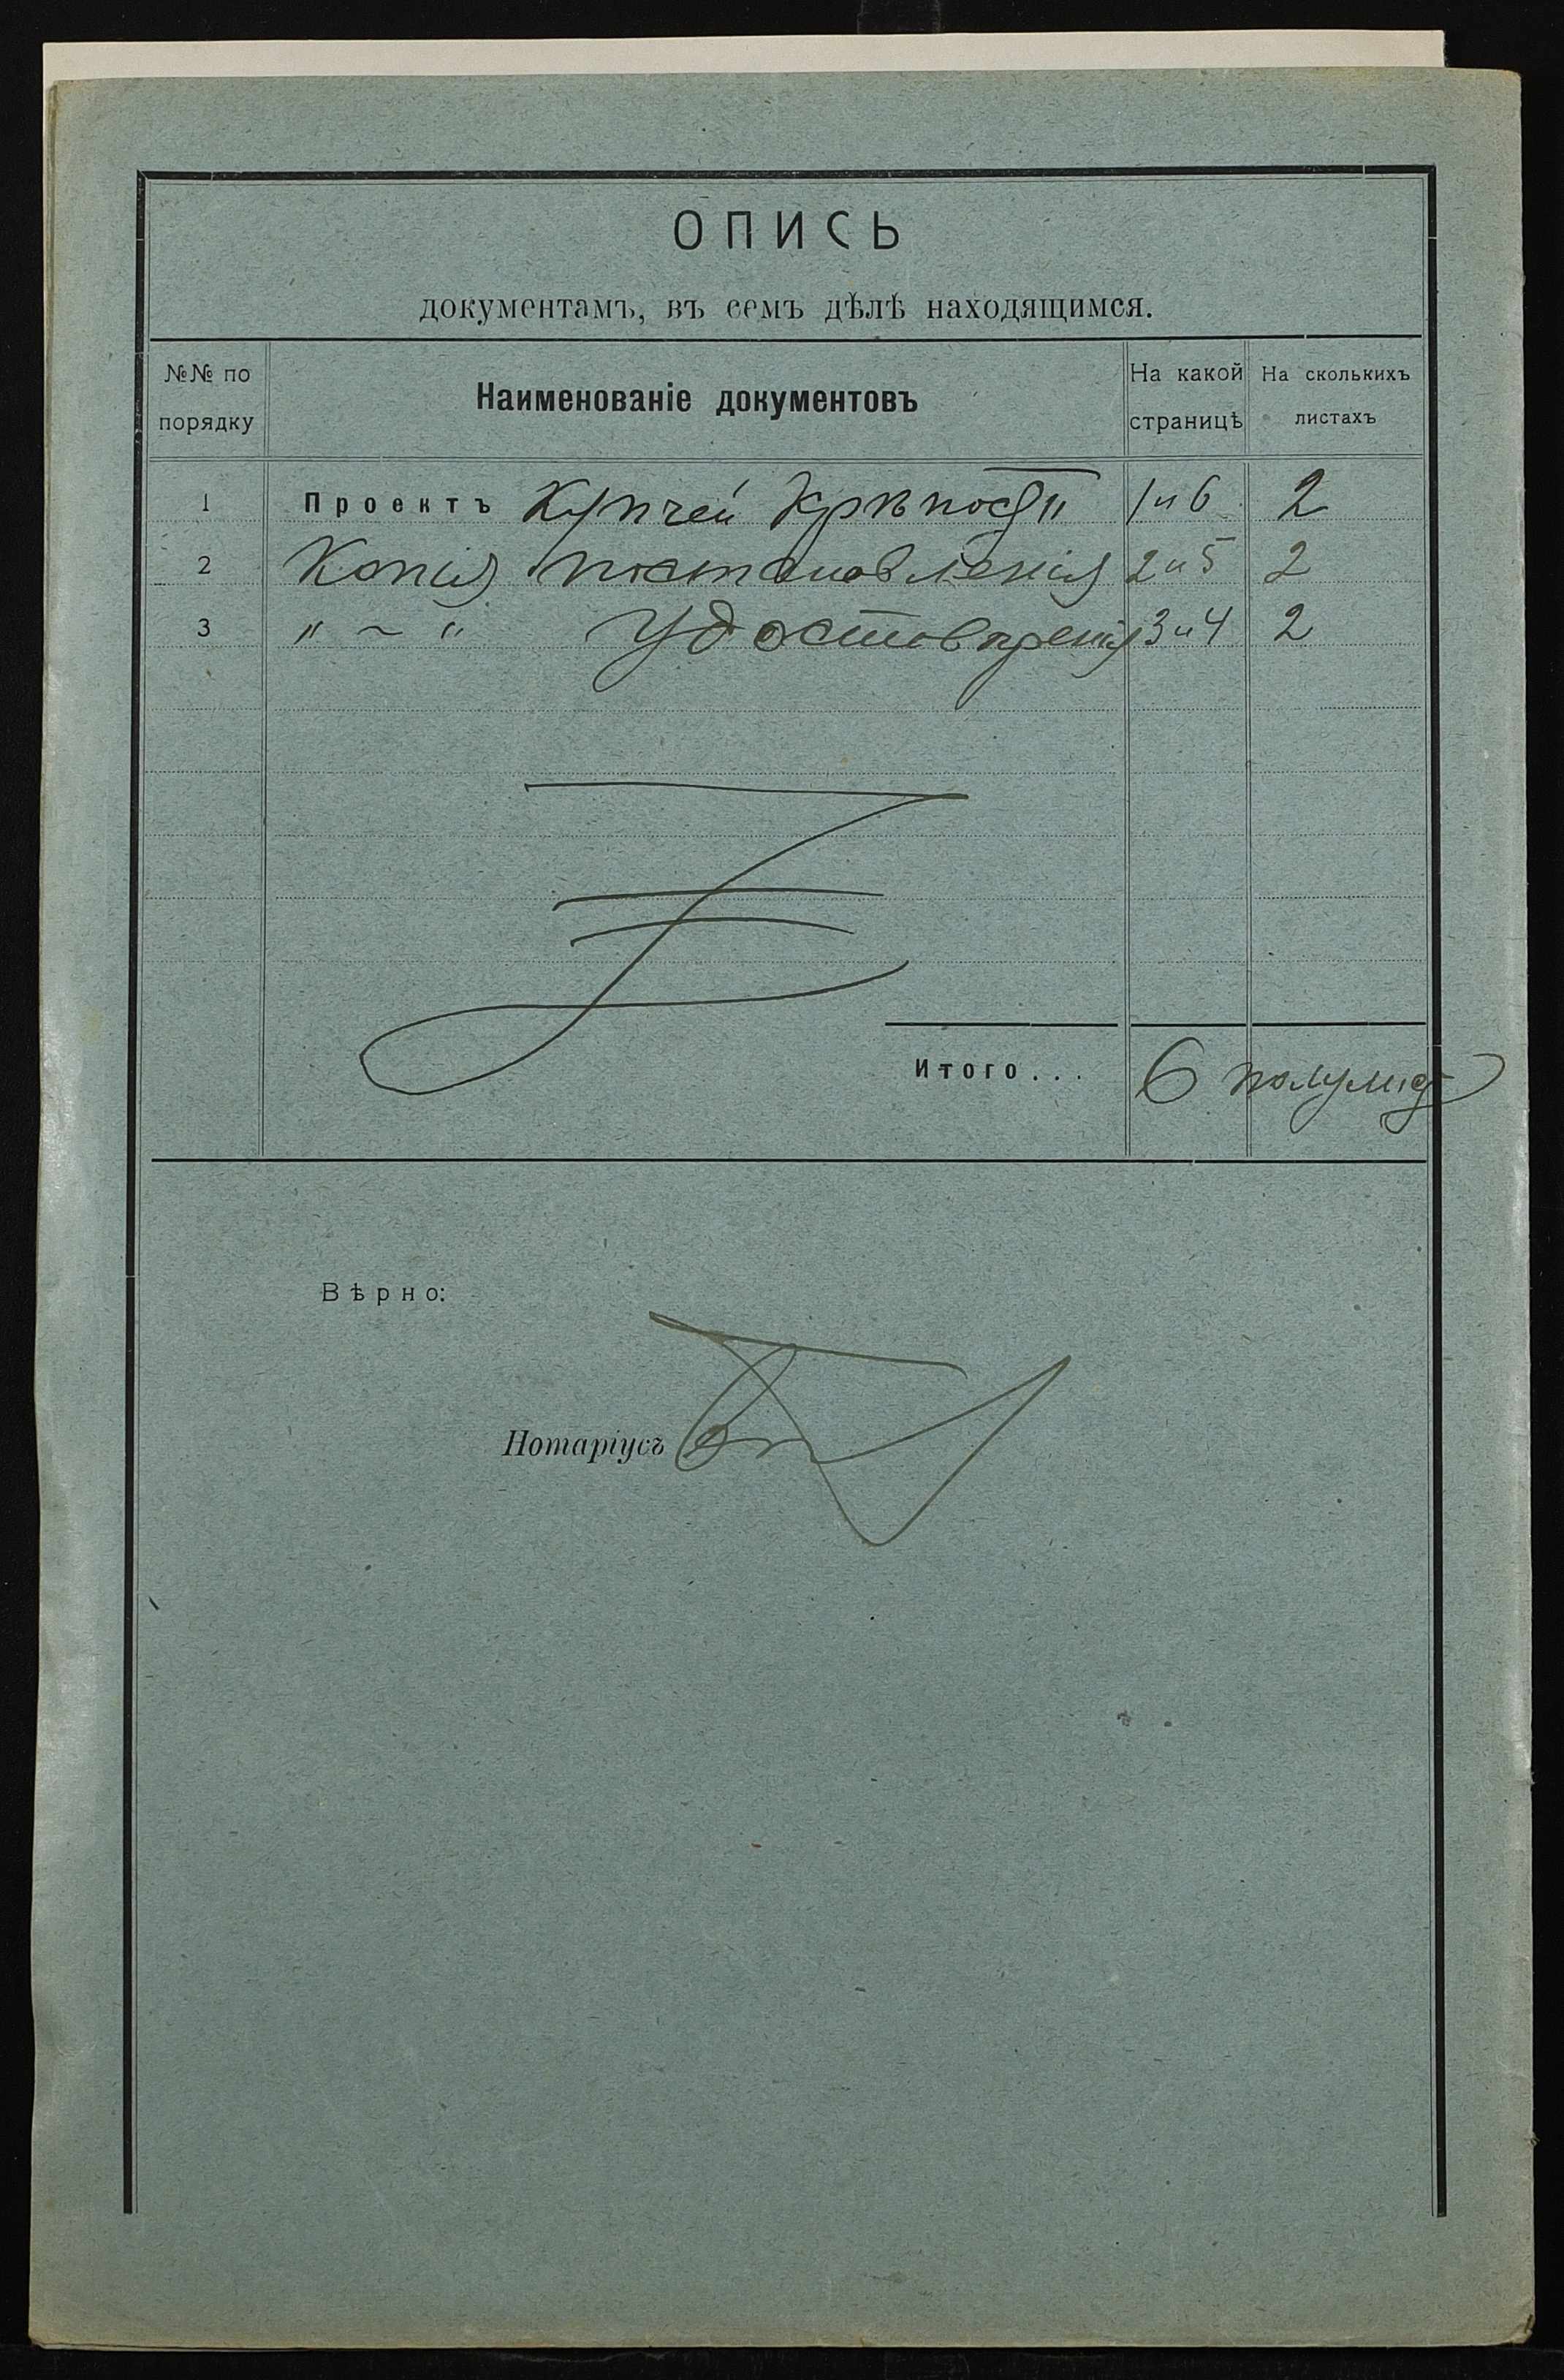 ОПИСЬ
документамъ, въ семъ дѣлѣ находящимся.
№№ по порядку Наименованіе документовъ На какой страницѣ На сколькихъ листахъ
1 Проектъ Купчей Крѣпости 1 и 6 2
2 Копія постановленія 2 и 5 2
3 " ~ " Удостовѣренія 3 и 4 2
Итого... 6 полулист
Вѣрно:
Нотаріусъ